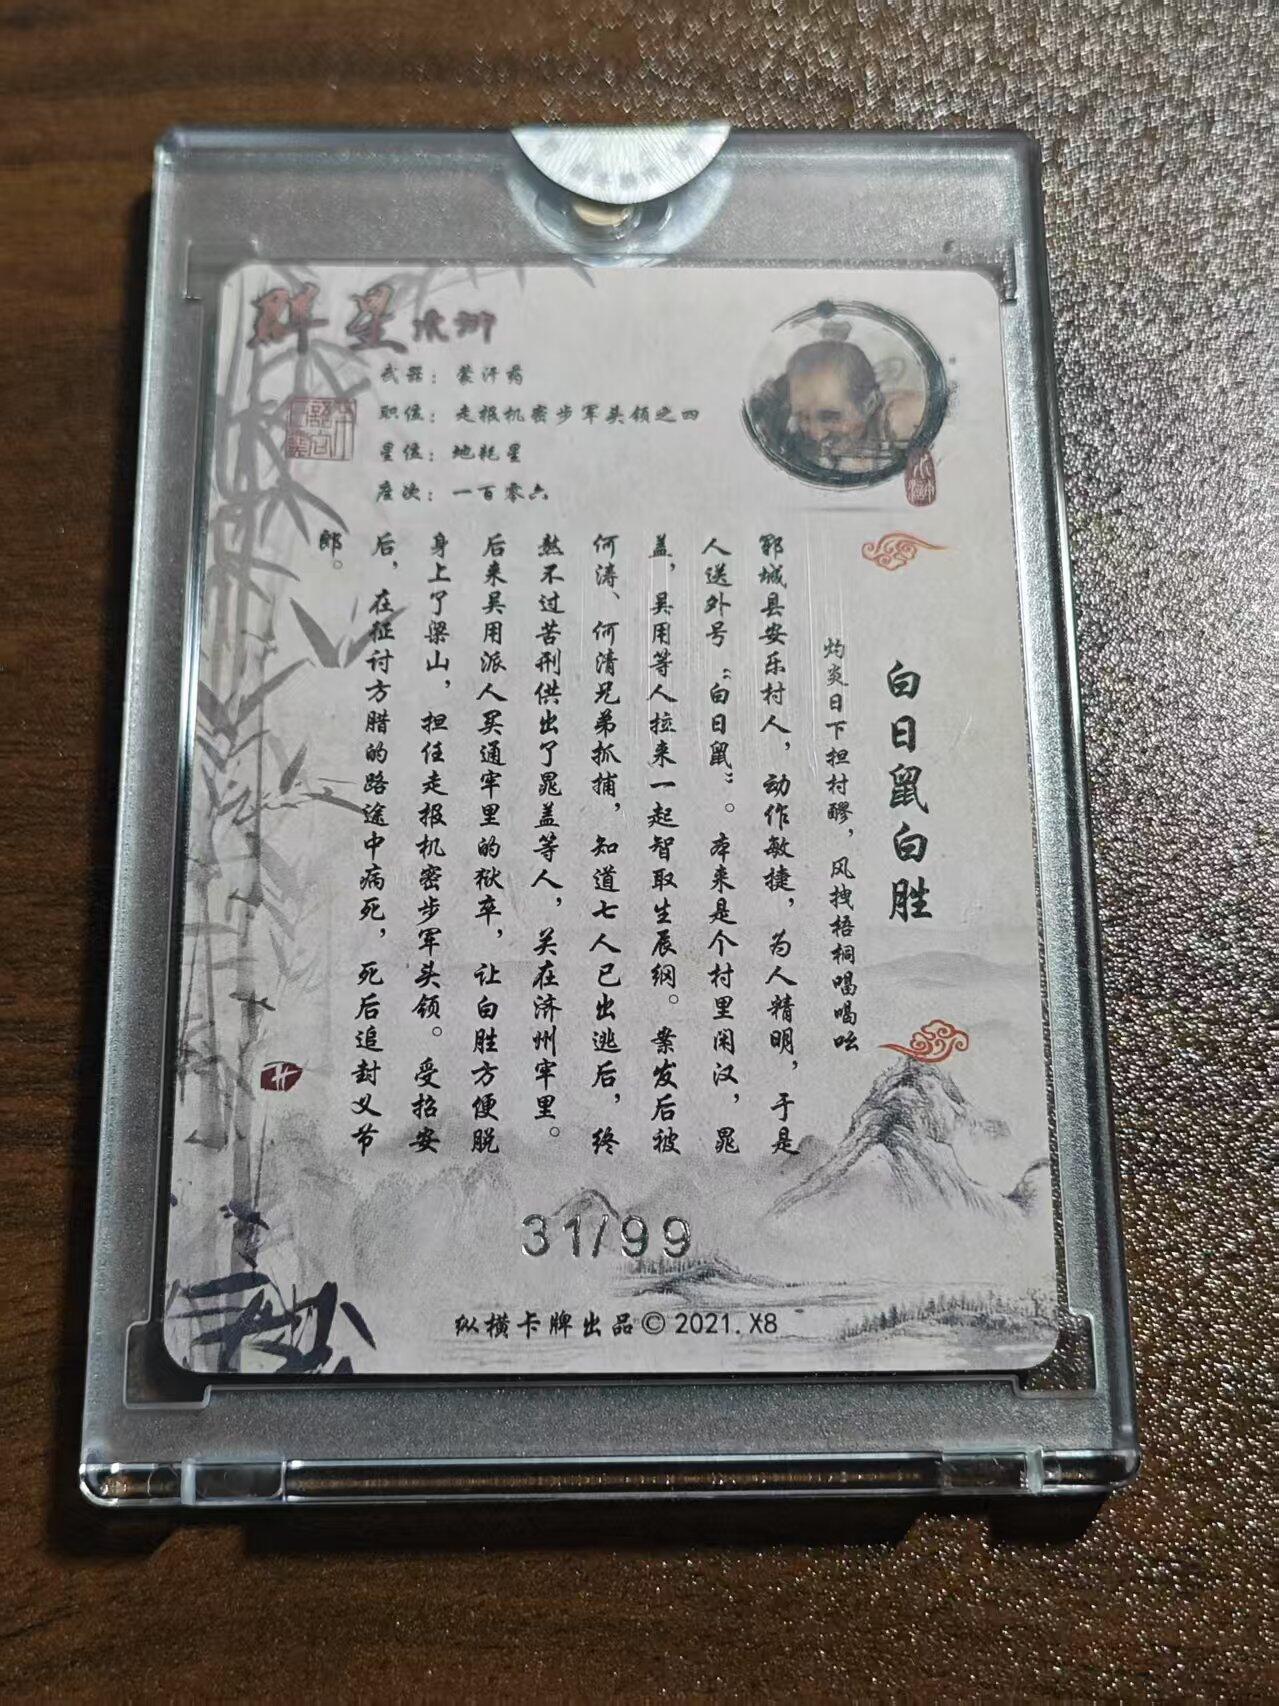 群星水浒
武器：蒙汗药
职位：走报机密步军头领之四
星位：地耗星
座次：一百零六
白日鼠白胜
灼炎日下担村醪，风拽梧桐唱喝吆
郓城县安乐村人，动作敏捷，为人精明，于是
人送外号“白日鼠”。本来是个村里闲汉，晁
盖，吴用等人拉来一起智取生辰纲。案发后被
何涛、何清兄弟抓捕，知道七人已出逃后，终
熬不过苦刑供出了晁盖等人，关在济州牢里。
后来吴用派人买通牢里的狱卒，让白胜方便脱
身上了梁山，担任走报机密步军头领。受招安
后，在征讨方腊的路途中病死，死后追封义节
郎。
31/99
纵横卡牌出品© 2021. X8